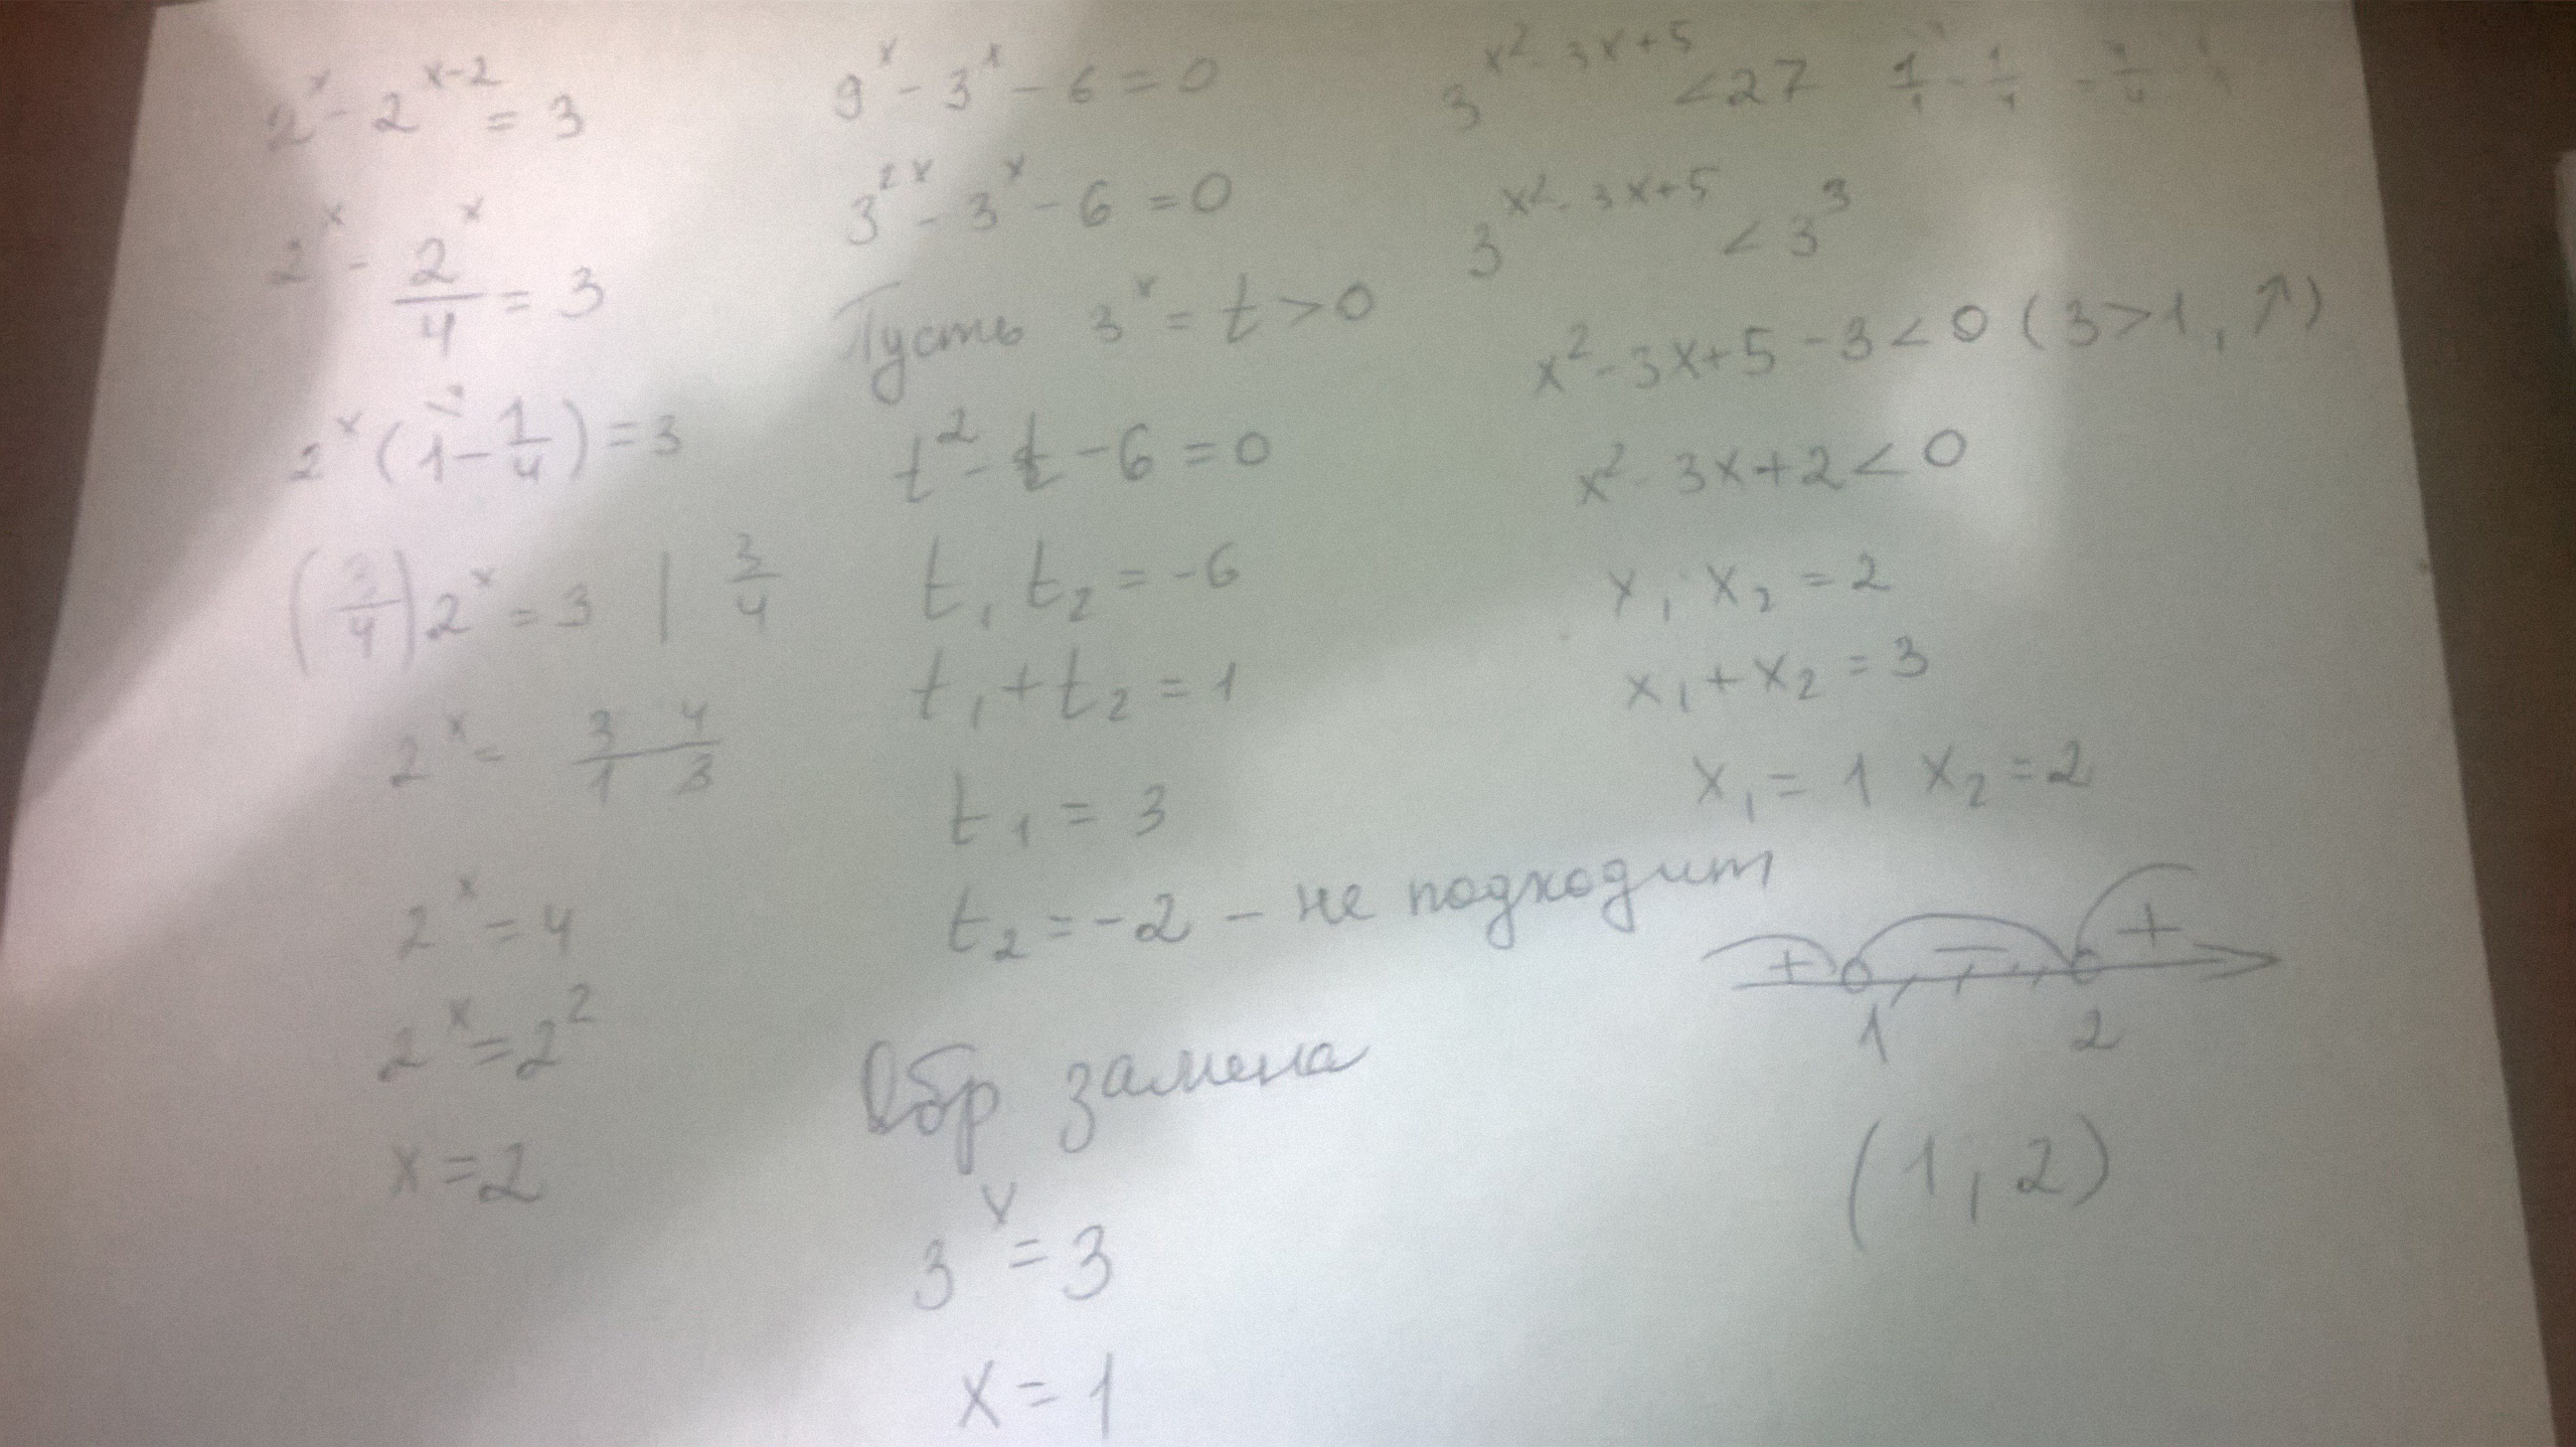 2^x - 2^(x-2) = 3
2^x - 2^x/4 = 3
2^x (1 - 1/4) = 3
(3/4) 2^x = 3 | 3/4
2^x = 3 4 / 1 3
2^x = 4
2^x = 2^2
x = 2
9^x - 3^x - 6 = 0
3^(2x) - 3^x - 6 = 0
Пусть 3^x = t > 0
t^2 - t - 6 = 0
t₁ t₂ = -6
t₁ + t₂ = 1
t₁ = 3
t₂ = -2 - не подходит
Обр замена
3^x = 3
x = 1
3^(x² - 3x + 5) < 27
3^(x² - 3x + 5) < 3^3
x² - 3x + 5 - 3 < 0 (3 > 1, ↑)
x² - 3x + 2 < 0
x₁ x₂ = 2
x₁ + x₂ = 3
x₁ = 1 x₂ = 2
+ - +
1 2
(1, 2)